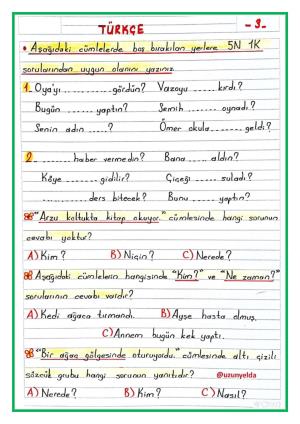 TÜRKÇE - 3 -
• Aşağıdaki cümlelerde boş bırakılan yerlere 5N 1K
sorularından uygun olanını yazınız.
1- Oya'yı .......... gördün? Vazoyu ...... kırdı?
Bugün .......... yaptın? Semih .......... oynadı?
Senin adın ........? Ömer okula....... geldi?
2- .......... haber vermedin? Bana ..... aldın?
Köye ........ gidilir? Çiçeği ...... suladı?
.......... ders bitecek? Bunu ...... yaptın?
"Arzu koltukta kitap okuyor." cümlesinde hangi sorunun
cevabı yoktur?
A) Kim? B) Niçin? C) Nerede?
Aşağıdaki cümlelerin hangisinde "Kim?" ve "Ne zaman?"
sorularının cevabı vardır?
A) Kedi ağaca tırmandı. B) Ayşe hasta olmuş.
C) Annem bugün kek yaptı.
"Bir ağaç gölgesinde oturuyordu." cümlesinde altı çizili
sözcük grubu hangi sorunun yanıtıdır? @uzunyelda
A) Nerede? B) Kim? C) Nasıl?